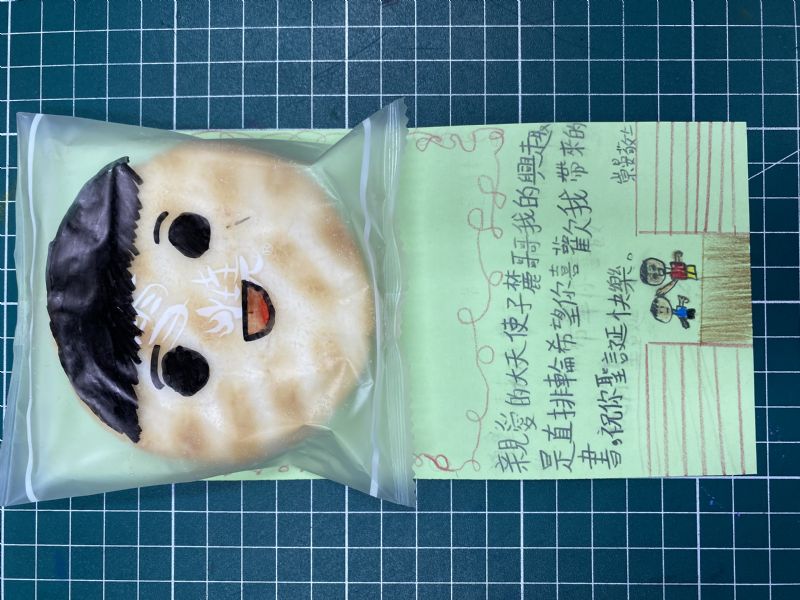 親愛的大天使子麓哥哥我的興趣
是直排輪希望你喜歡我帶來的
書。祝你聖誕快樂。
敬上